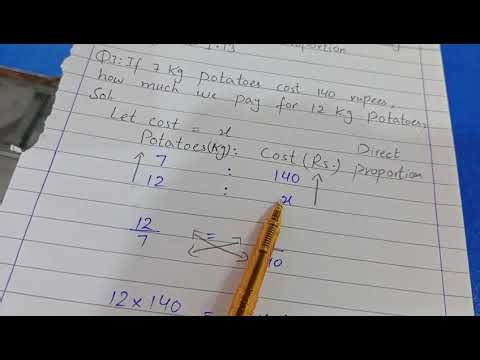 1.13 proportion
Q3: If 7 Kg potatoes cost 140 rupees,
how much we pay for 12 Kg potatoes,
Sol
Let cost = x
Potatoes(Kg): Cost (Rs.) Direct proportion
7 : 140
12 : x
12/7 =
12 × 140 =